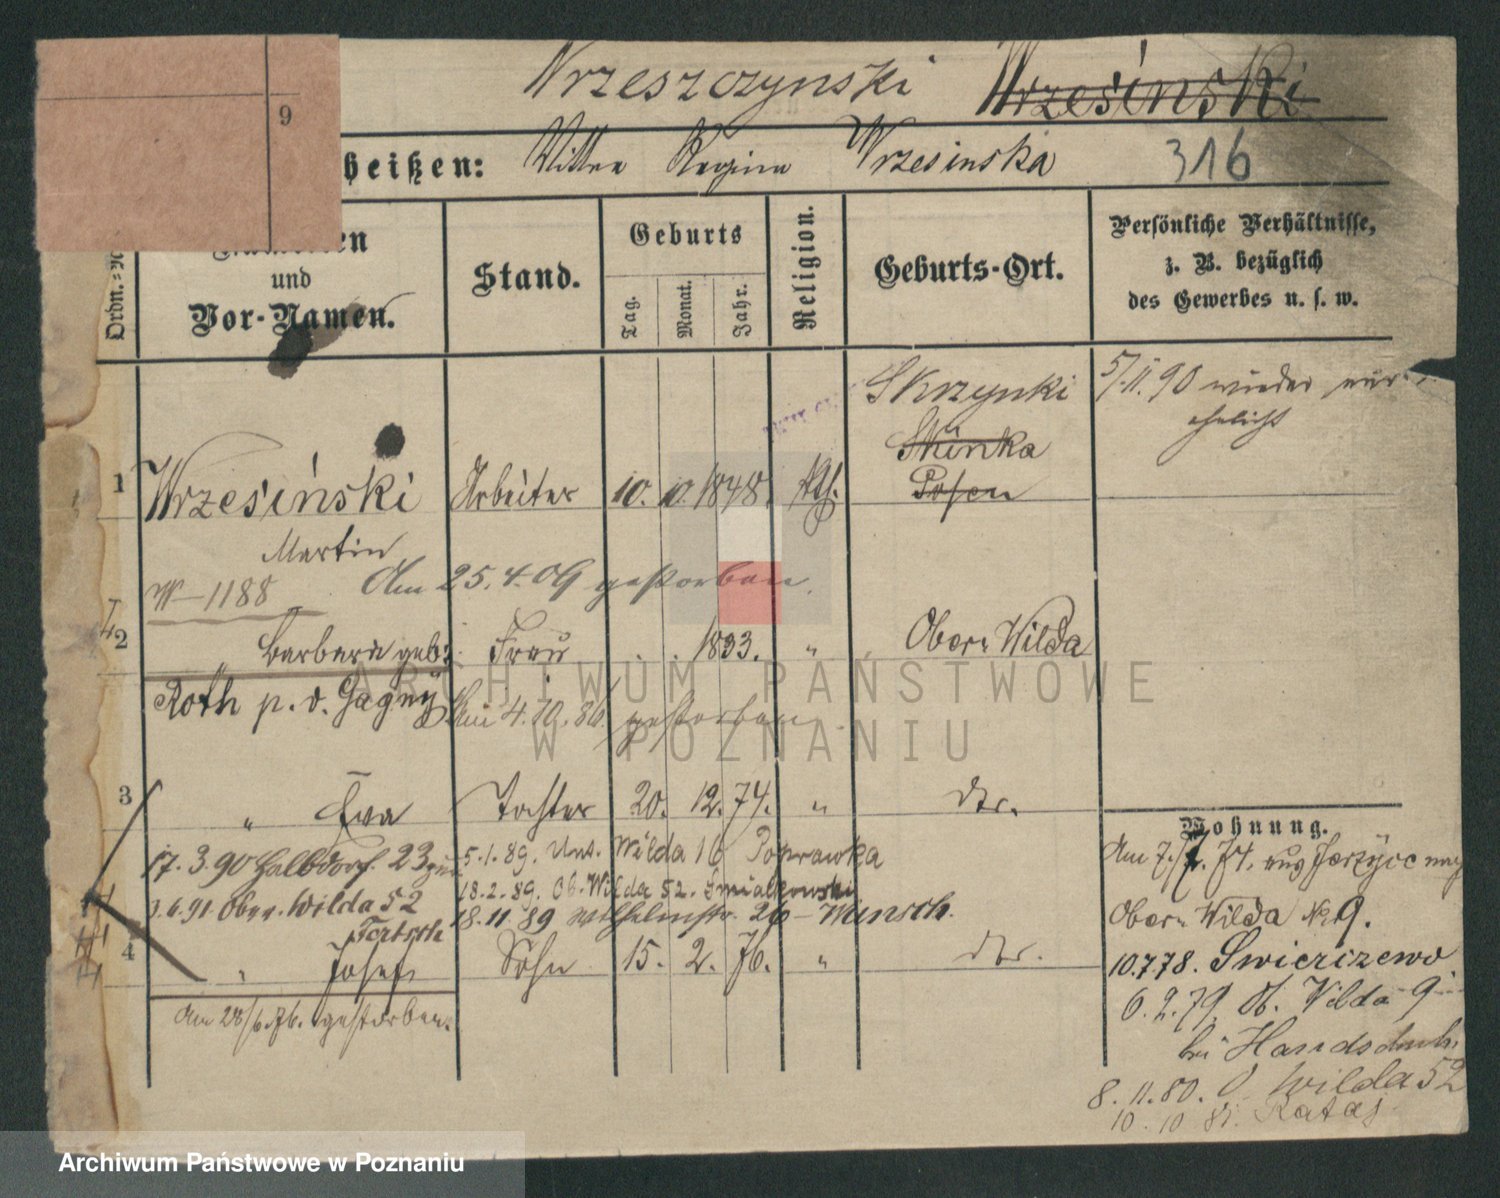 9
Wrzeszczynski Wrzesinski
heißen: Regina Wrzesinska 316
Ordn.
und
Vor-Namen.
Stand.
Geburts
Tag.
Monat.
Jahr.
Religion.
Geburts-Ort.
Persönliche Verhältnisse,
z. B. bezüglich
des Gewerbes u. s. w.
Skrzynki
5/11.90 wieder ver
ehelicht
Skünka
1 Wrzesiński Arbeiter 10. 10. 1848. Kth. Posen
Martin
Am 25.4.09 gestorben.
W-1188
2 Barbara geb: Frau . . 1833. " Ober Wilda
Roth p. v. Gagny Am 4.10.86 gestorben
3 " Eva Tochter 20. 12. 74. " dto.
17.3.90 Halbdorf. 23 5.1.89. Unt. Wilda 16 Poprawka
18.2.89. Ob. Wilda 52. Smialkowski
3.6.91 Ober. Wilda 52 18.11.89 Wilhelmstr. 26 - Wunsch.
4 " Josef Sohn 15. 2. 76. " dto.
Am 28/6.76. gestorben.
Wohnung.
Am 7./7. 74. aus Jerzyce nach
Ober Wilda No 9.
10.7.78. Swierczewo
6.2.79. Ob. Wilda 9
bei Handschuh.
8.11.80. O. Wilda 52
10.10.81. Rataj
ARCHIWUM PAŃSTWOWE
W POZNANIU
Archiwum Państwowe w Poznaniu